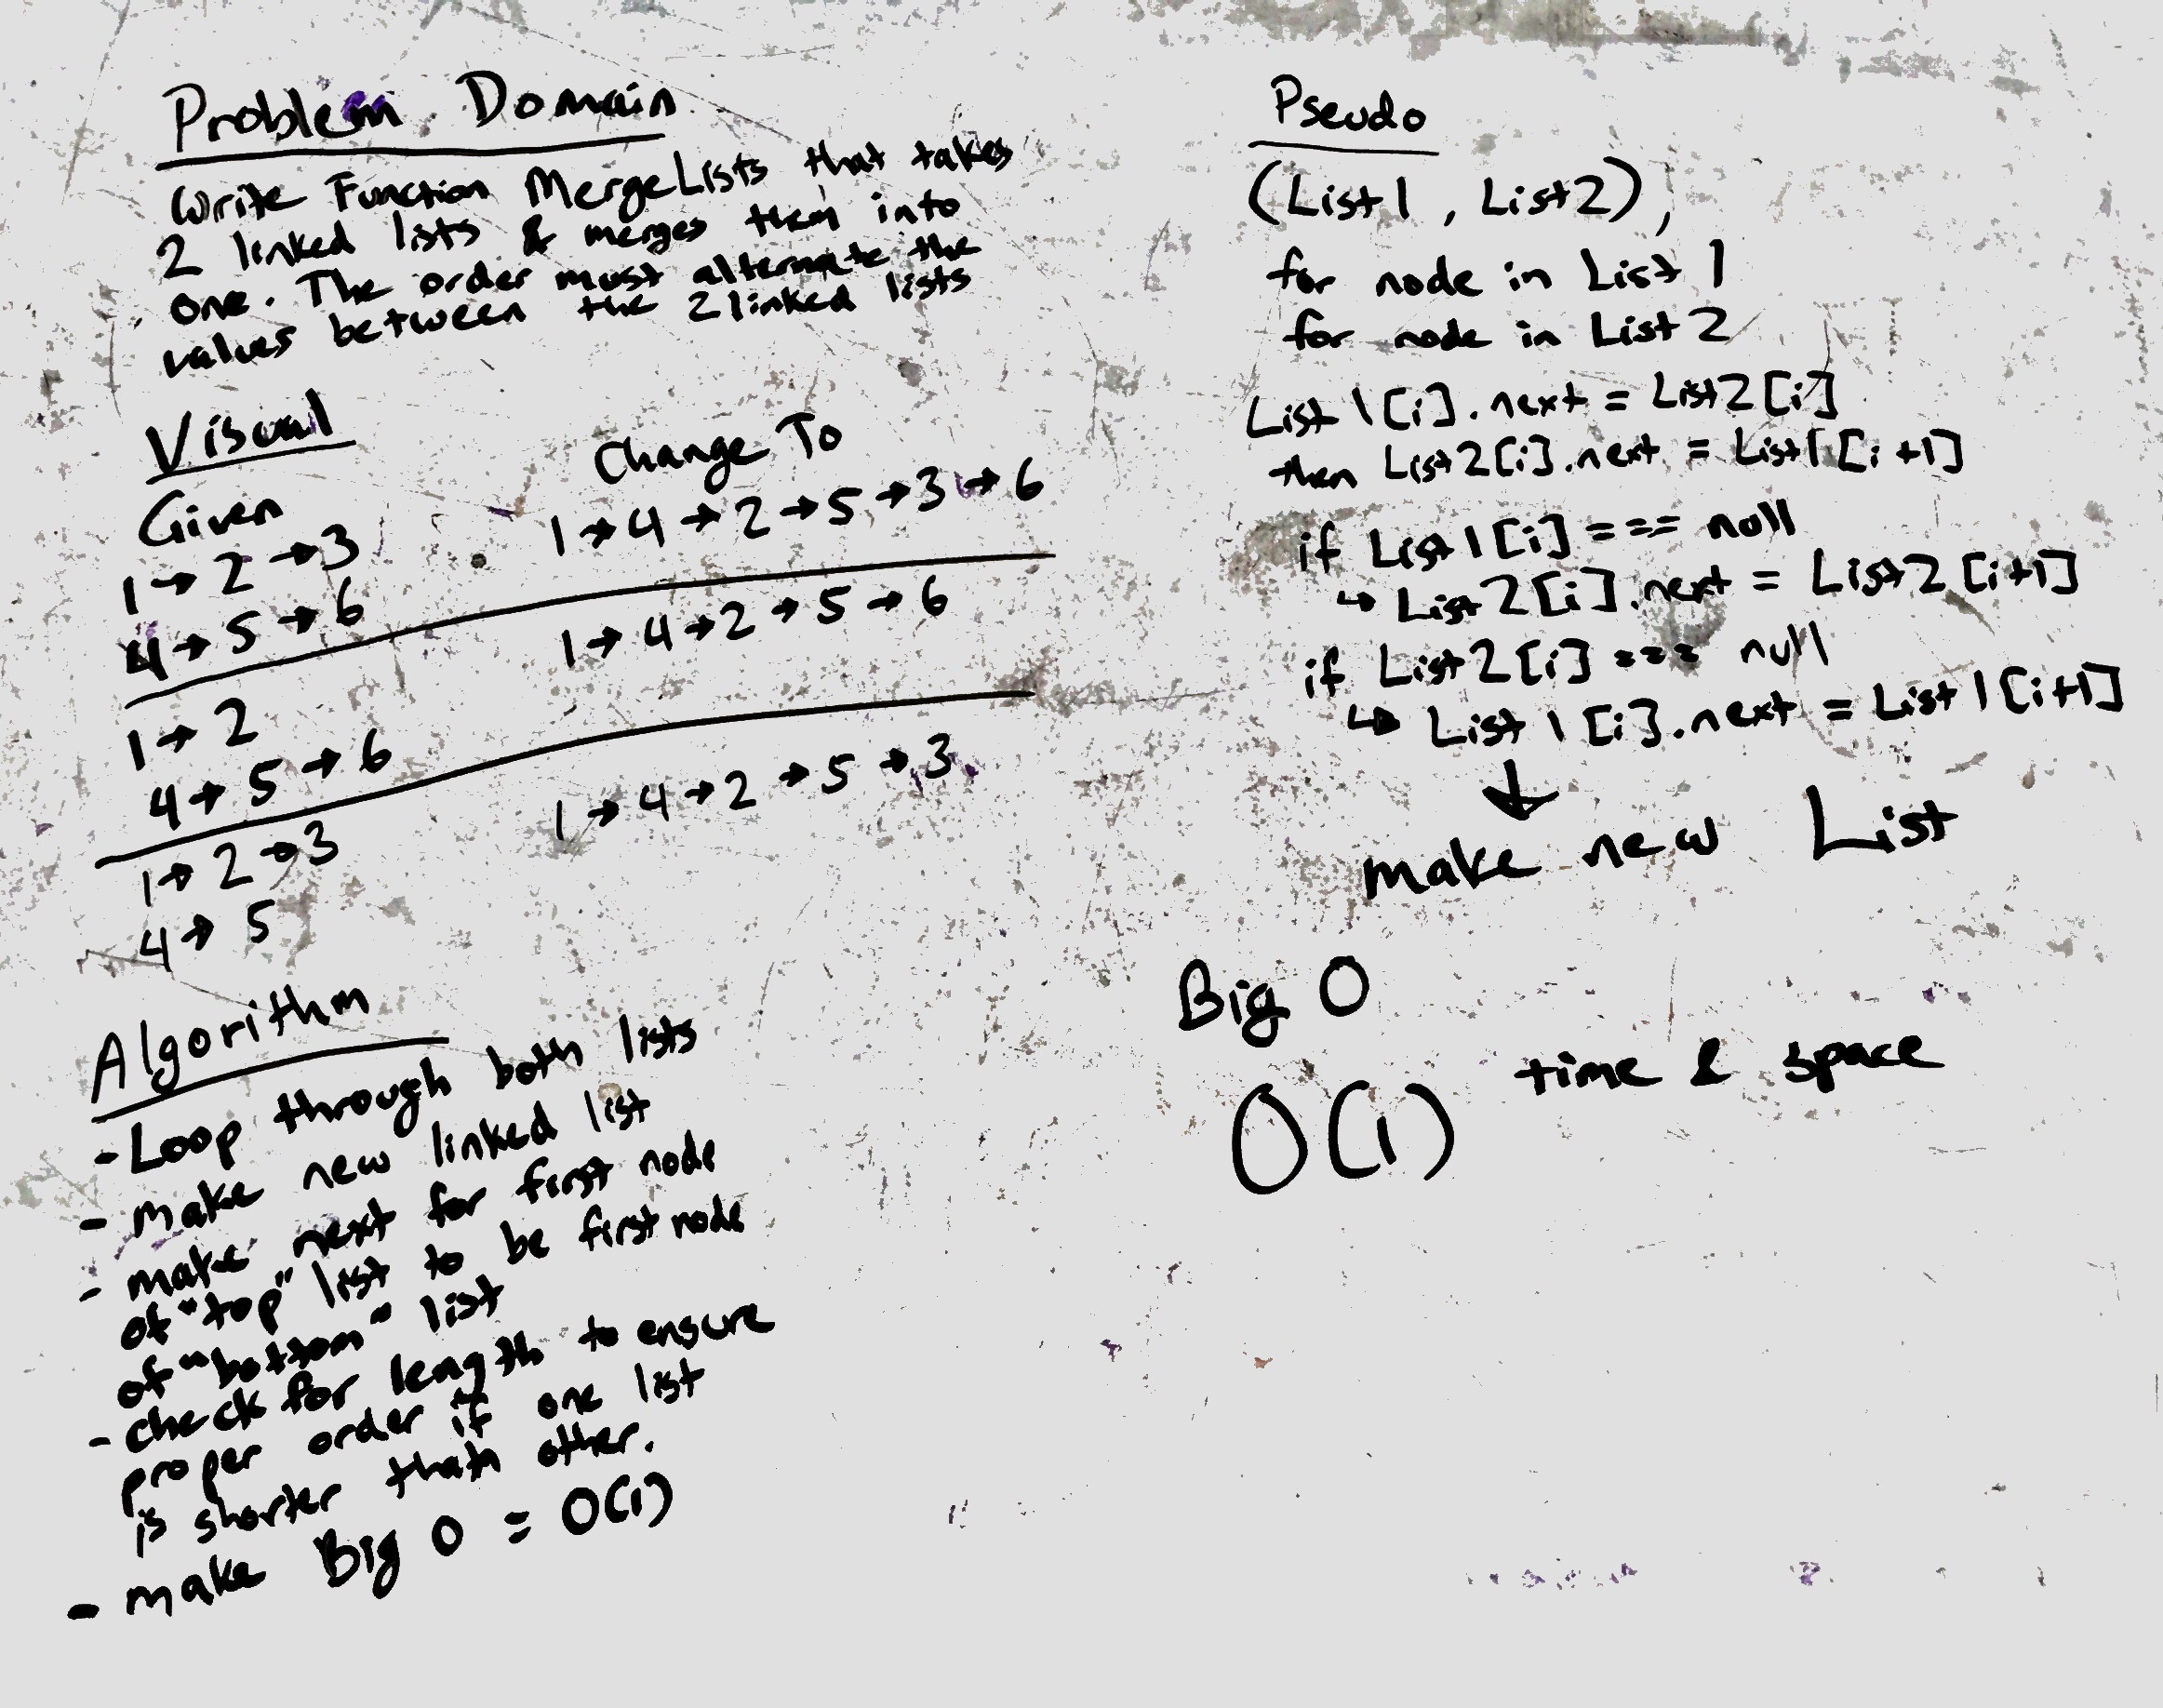 Problem Domain
Write Function MergeLists that takes
2 linked lists & merges them into
one. The order must alternate the
values between the 2 linked lists
Visual
Given
1 → 2 → 3
4 → 5 → 6
Change To
1 → 4 → 2 → 5 → 3 → 6
1 → 2
4 → 5 → 6
1 → 4 → 2 → 5 → 6
1 → 2 → 3
4 → 5
1 → 4 → 2 → 5 → 3
Algorithm
- Loop through both lists
- make new linked list
- make next for first node
of "top" list to be first node
of "bottom" list
- check for length to ensure
proper order if one list
is shorter than other.
- make Big O = O(1)
Pseudo
(List1, List2),
for node in List 1
for node in List 2
List 1[i].next = List2[i]
then List2[i].next = List1[i+1]
if List1[i] === null
↳ List2[i].next = List2[i+1]
if List2[i] === null
↳ List 1[i].next = List1[i+1]
↓
make new List
Big O
O(1) time & space